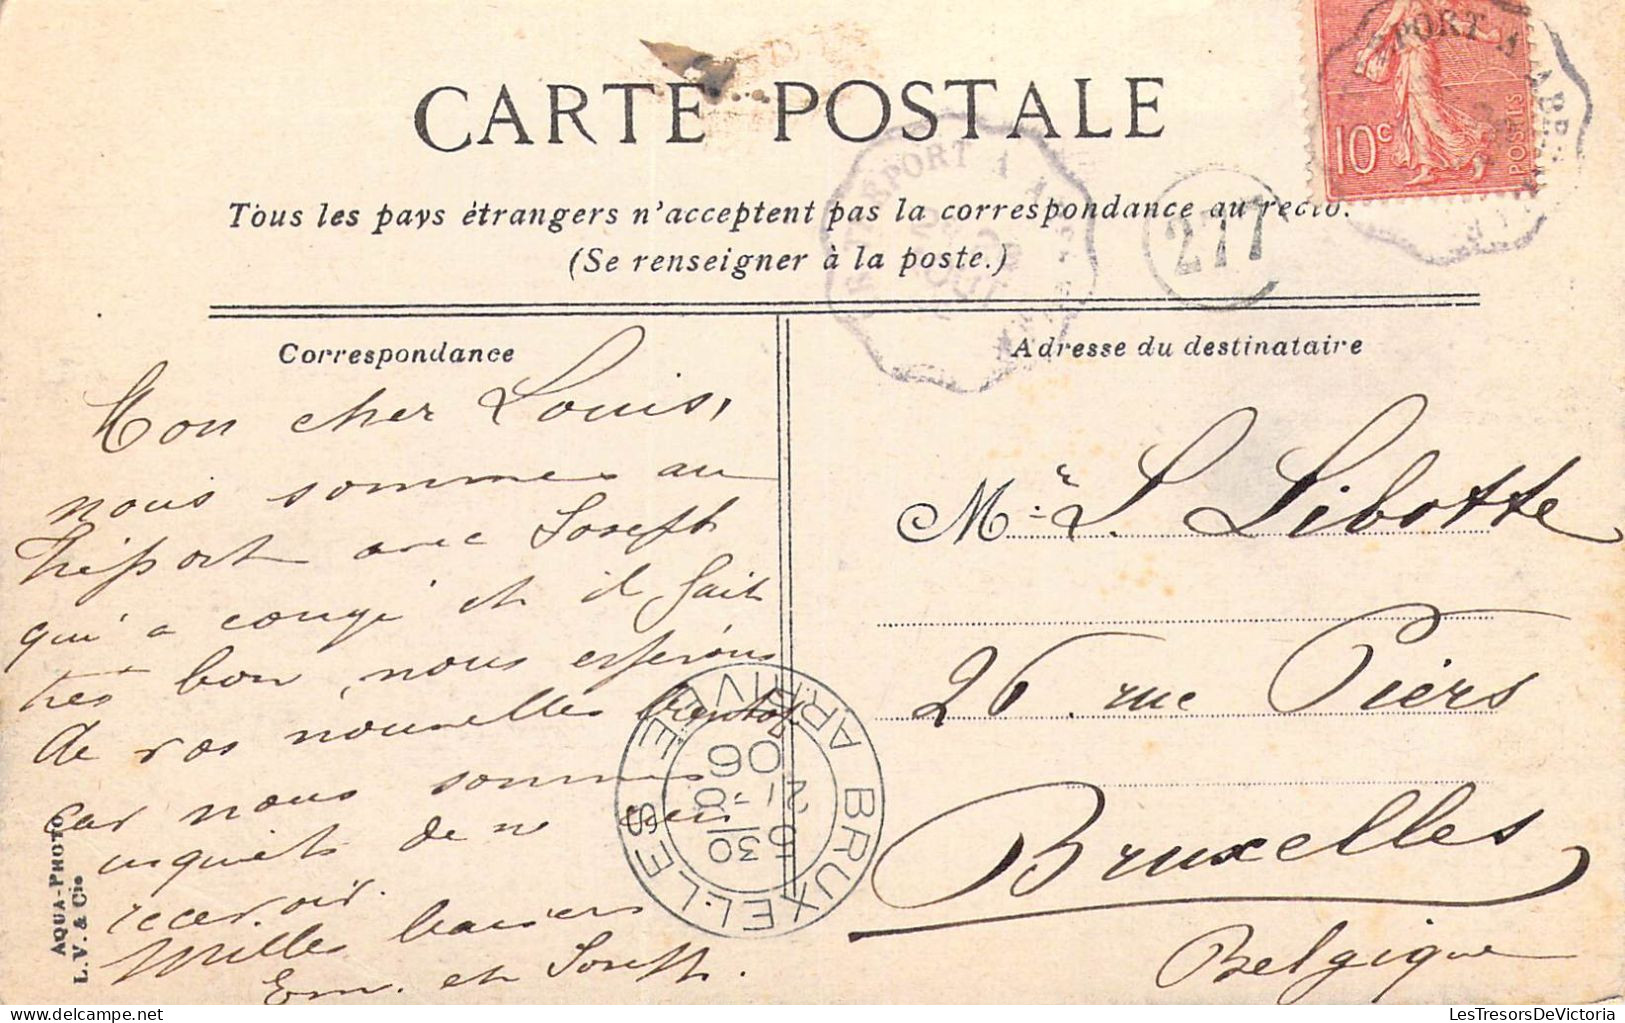 CARTE POSTALE
Tous les pays étrangers n'acceptent pas la correspondance au recto.
(Se renseigner à la poste.)
10c
POSTES
TRÉPORT A
277
Correspondance
Adresse du destinataire
Mon cher Louis,
nous sommes au
Tréport avec Joseph
qui a congé et il fait
très bon, nous espérons
de vos nouvelles bientôt
car nous sommes
inquiets de ne rien
recevoir.
Milles baisers
Em. et Joseph.
Mr. L. Libotte
26 rue Piers
Bruxelles
Belgique
BRUXELLES ARRIVÉE
AQUA-PHOTO
L. V. & Cie
www.delcampe.net
LesTresorsDeVictoria